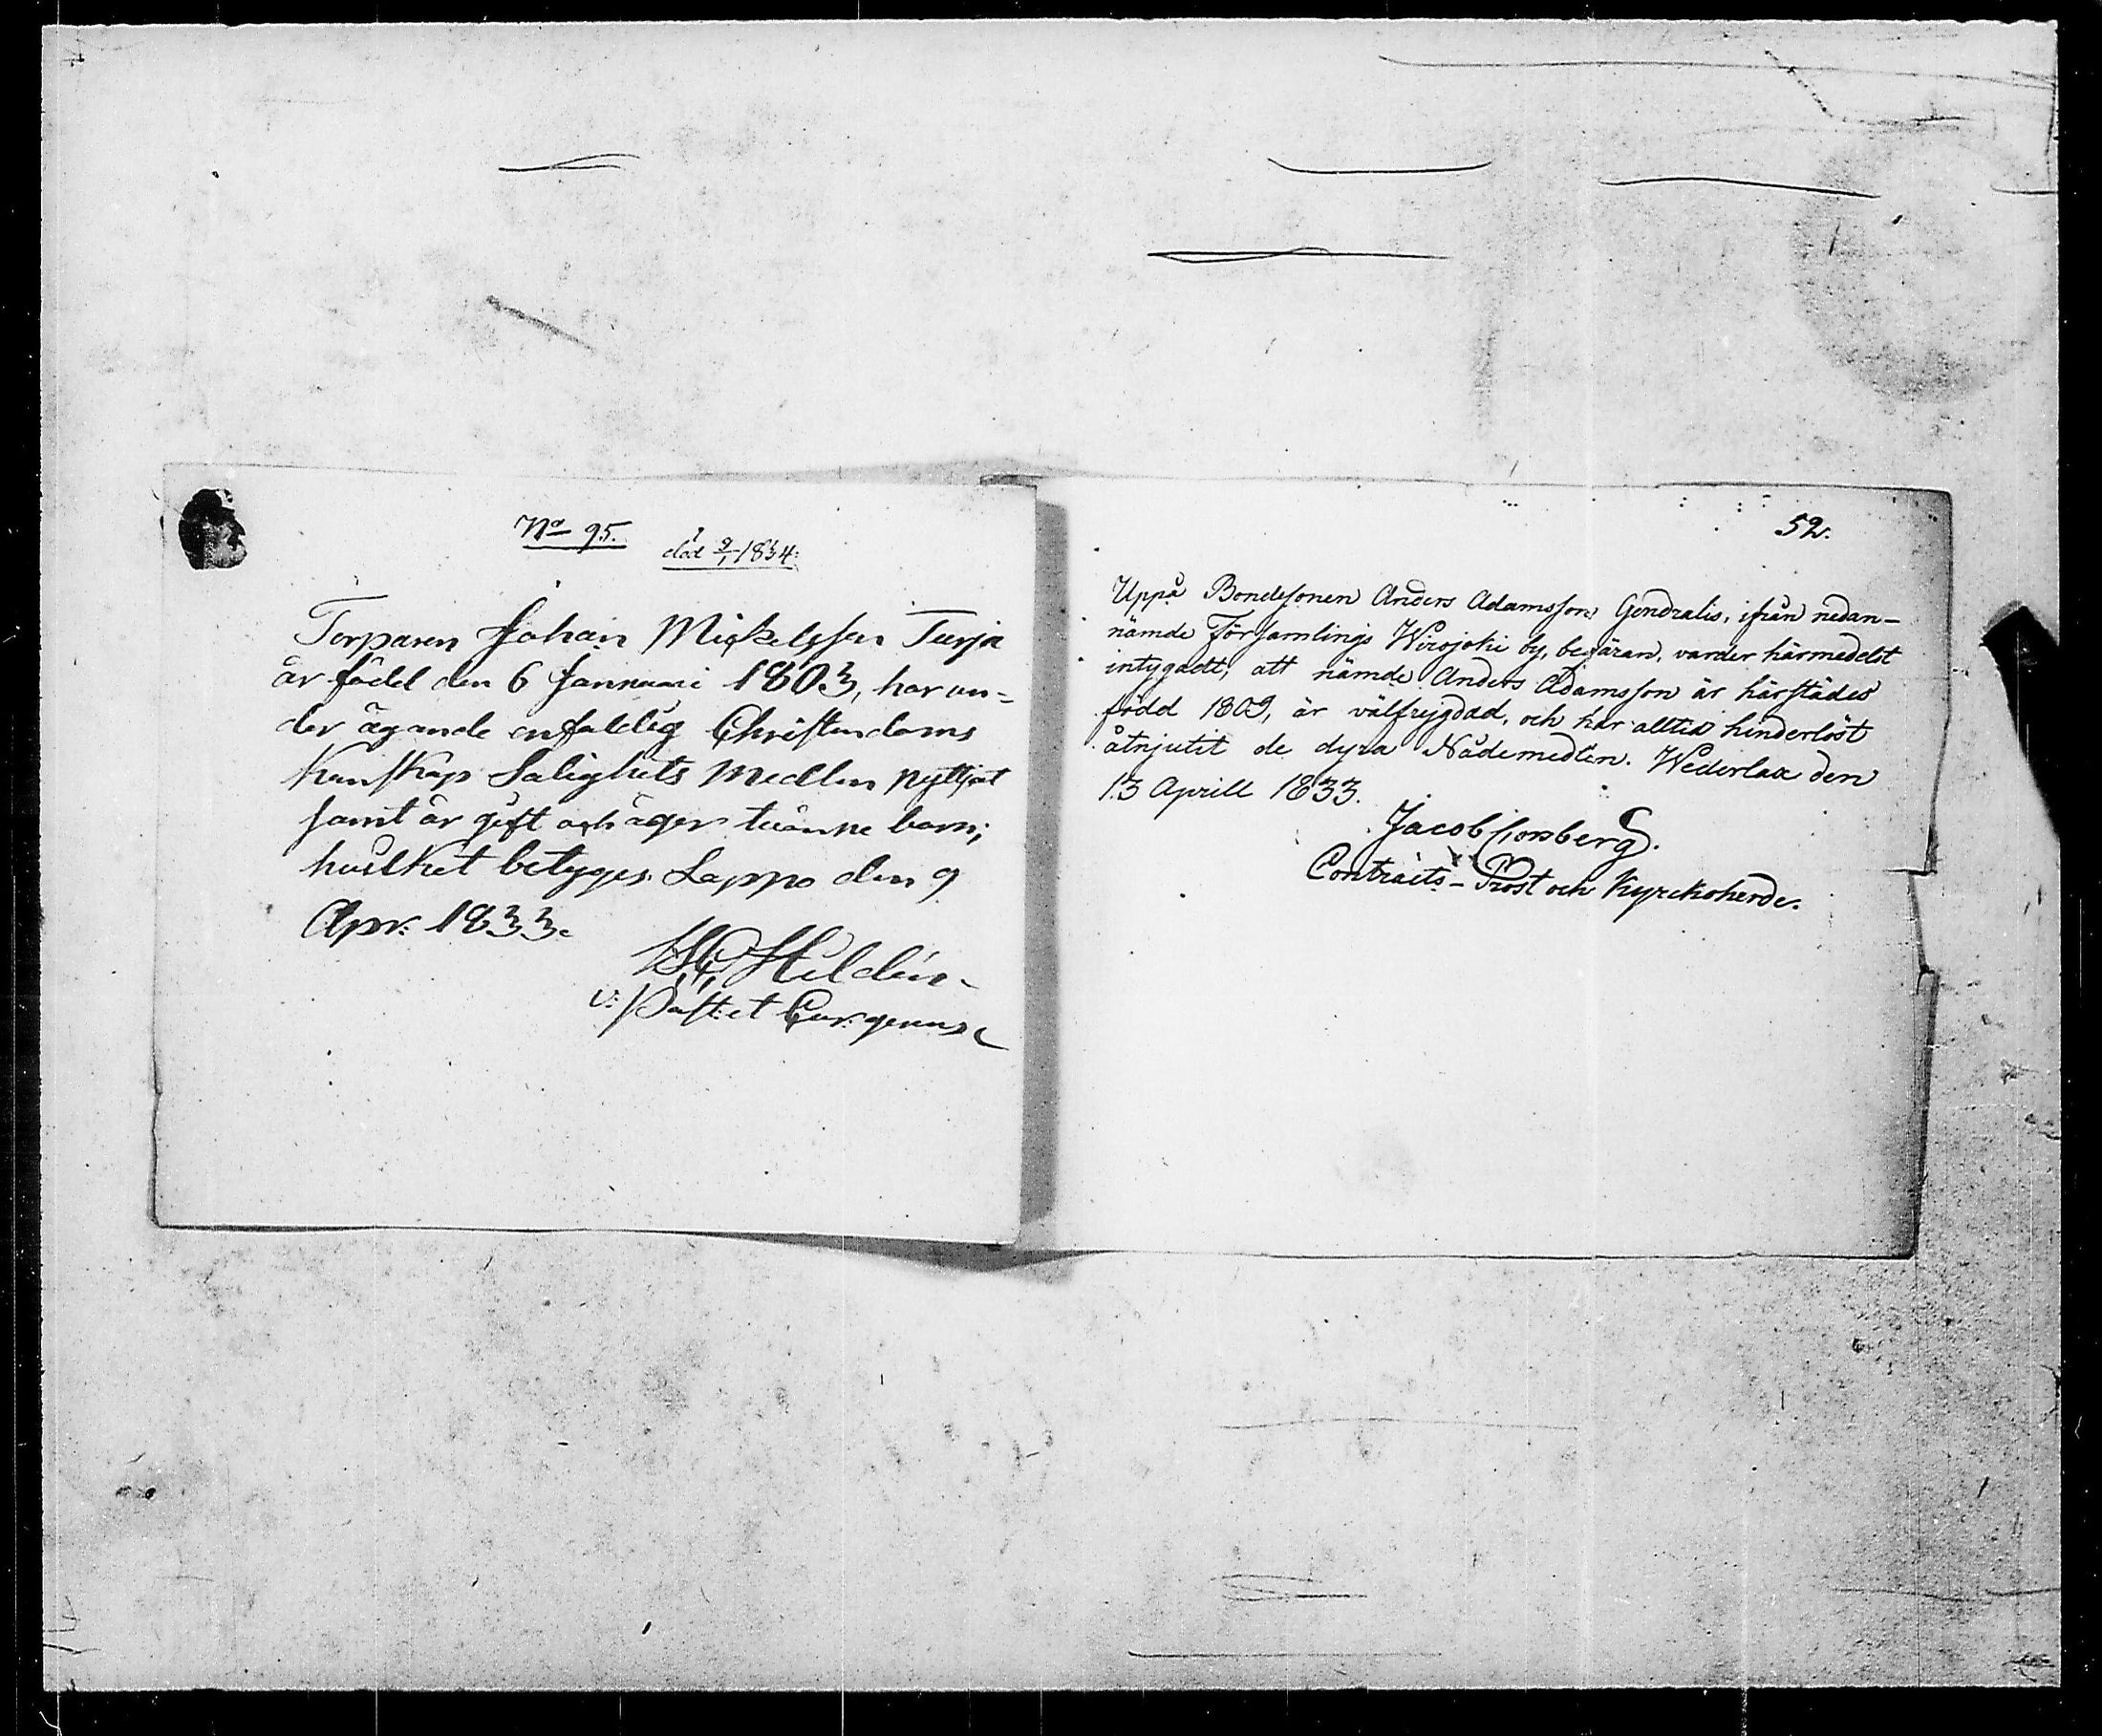 No 95.
död 9/1 1834.
Torparen Johan Mickelsson Turja
är född den 6 Januari 1803, har un-
der ägande enfaldig Christendoms
Kunskap Salighets Medlen nyttjat
samt är gift och äger tvänne barn;
hvilket betyges. Lappo den 9
Apr: 1833.
Hildén
v: Past: et Cur: gerens
52.
Uppå Bondesonen Anders Adamsson Gendralis, ifrån nedan-
nämde Församlings Wirojoki by, begäran, varder härmedelst
intygadt, att nämde Anders Adamsson är härstädes
född 1809, är välfrejgdad, och har alltid hinderlöst
åtnjutit de dyra Nådemedlen. Wederlax den
13 Aprill 1833.
Jacob Cronberg.
Contracts-Prost och Kyrckoherde.